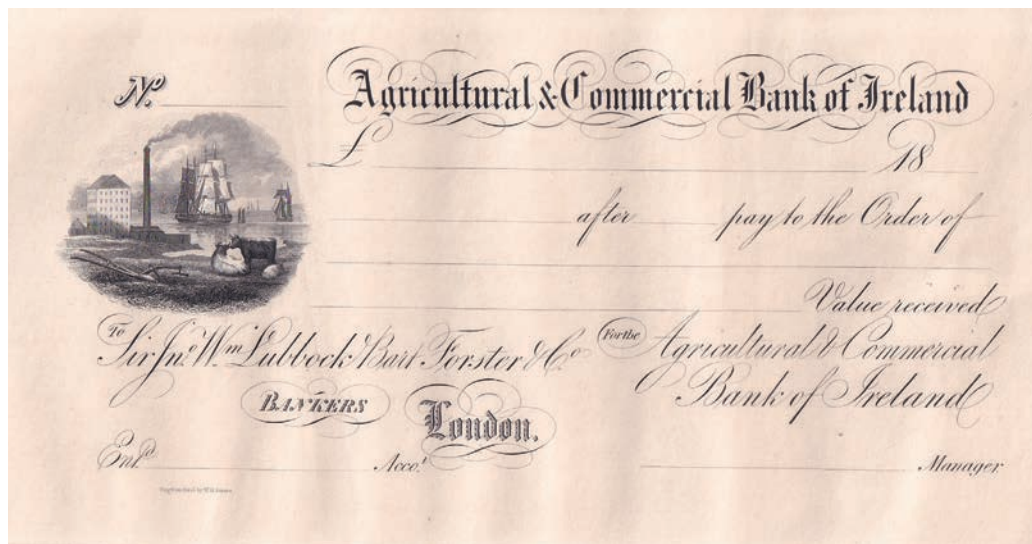 No.
Agricultural & Commercial Bank of Ireland
£ 18
after pay to the Order of
Value received
To Sir Jno. Wm. Lubbock Bart Forster & Co. For the Agricultural & Commercial
BANKERS Bank of Ireland
London.
Entd. Acco.t Manager